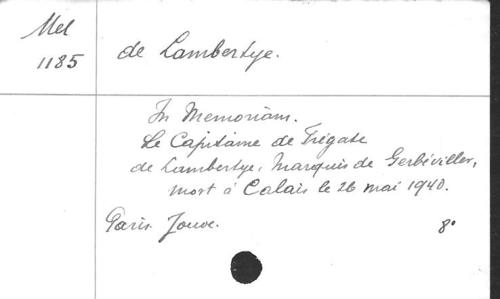 Mel
1185
de Lambertye.
In Memoriam.
Le Capitaine de Frégate
de Lambertye, Marquis de Gerbéviller,
mort à Calais le 26 mai 1940.
Paris. Jouve. 8°